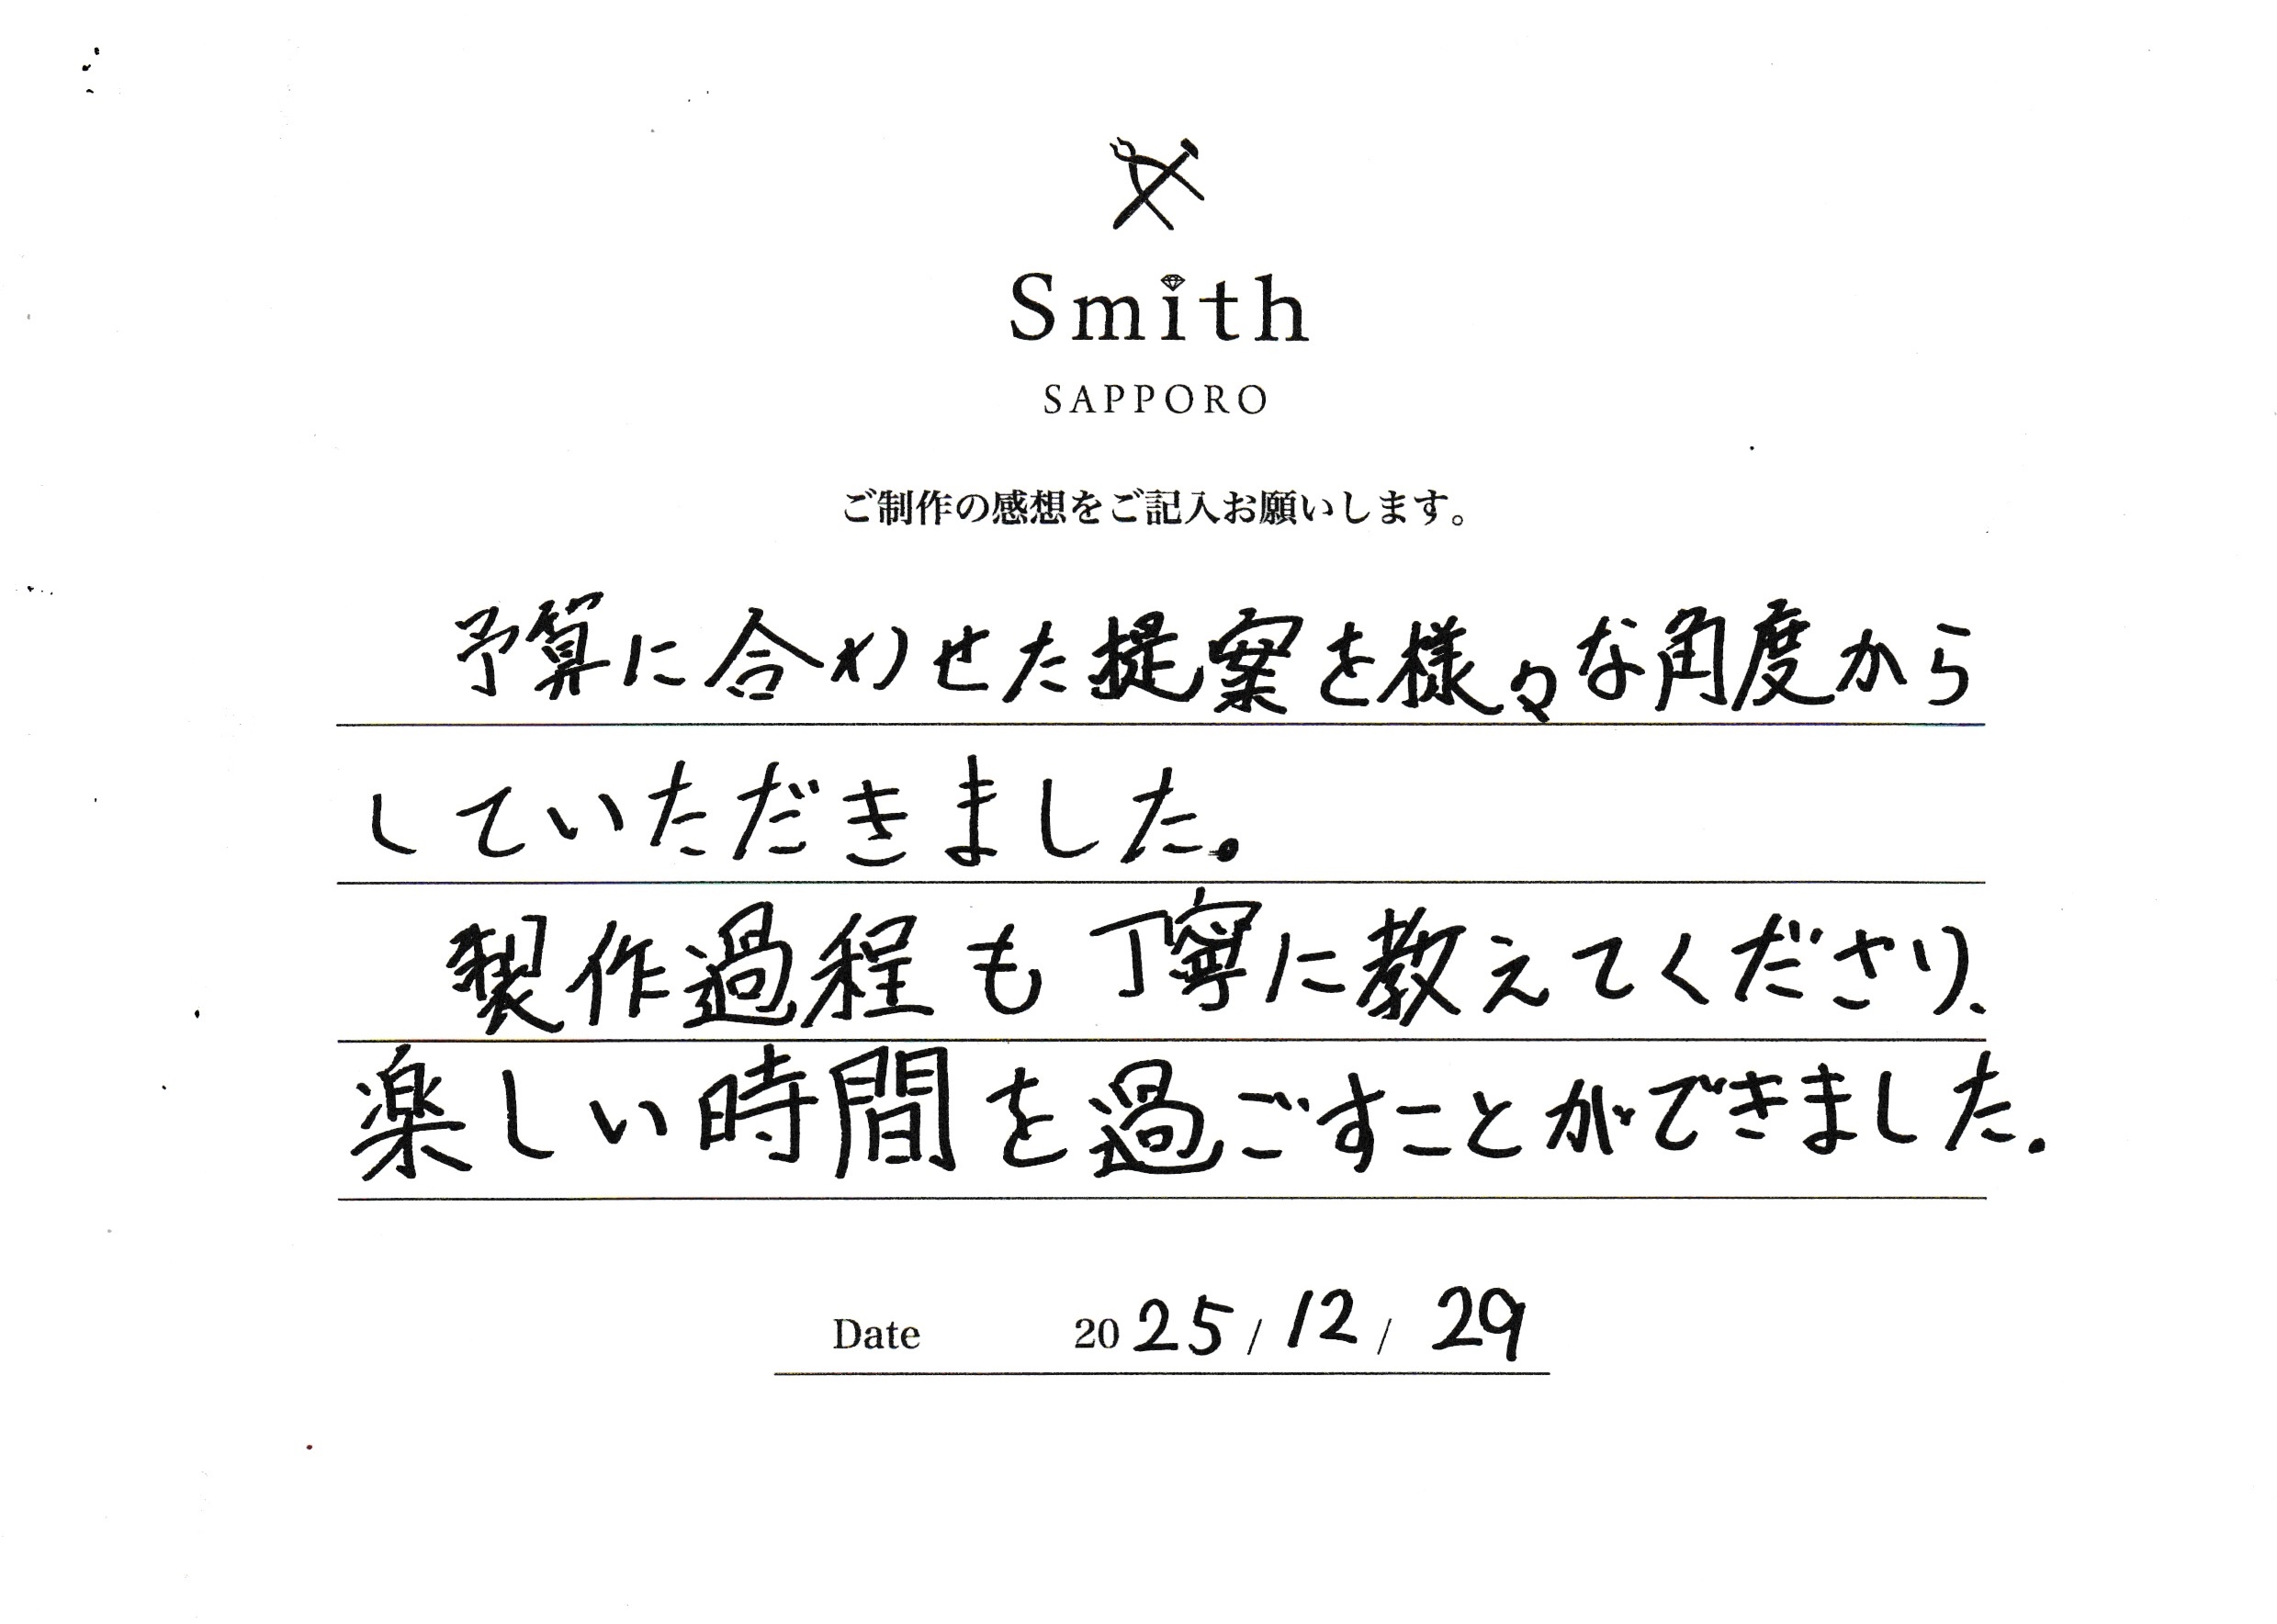 Smith
SAPPORO
ご制作の感想をご記入お願いします。
予算に合わせた提案を様々な角度から
していただきました。
製作過程も丁寧に教えてくださり、
楽しい時間を過ごすことができました.
Date 2025/12/29